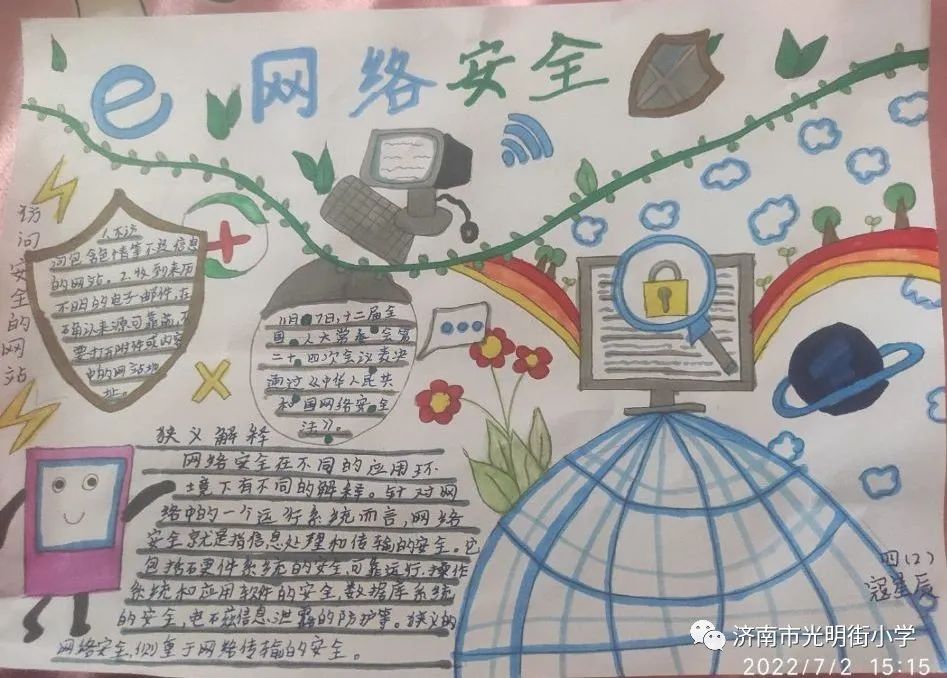 e 网络安全
访问安全的网站
1.不访
问包含色情等不良信息
的网站。2.收到来历
不明的电子邮件,在
确认来源可靠前,不
要打开附件或内容
中的网站地
址。
11月7日,十二届全
国人大常委会第
二十四次会议表决
通过《中华人民共
和国网络安全
法》。
狭义解释
网络安全在不同的应用环
境下有不同的解释。针对网
络中的一个运行系统而言,网络
安全就是指信息处理和传输的安全。它
包括硬件系统的安全,可靠运行,操作
系统和应用软件的安全,数据库系统
的安全,电磁信息泄露的防护等。狭义的
网络安全,侧重于网络传输的安全。
四(2)
寇星辰
济南市光明街小学
2022/7/2 15:15